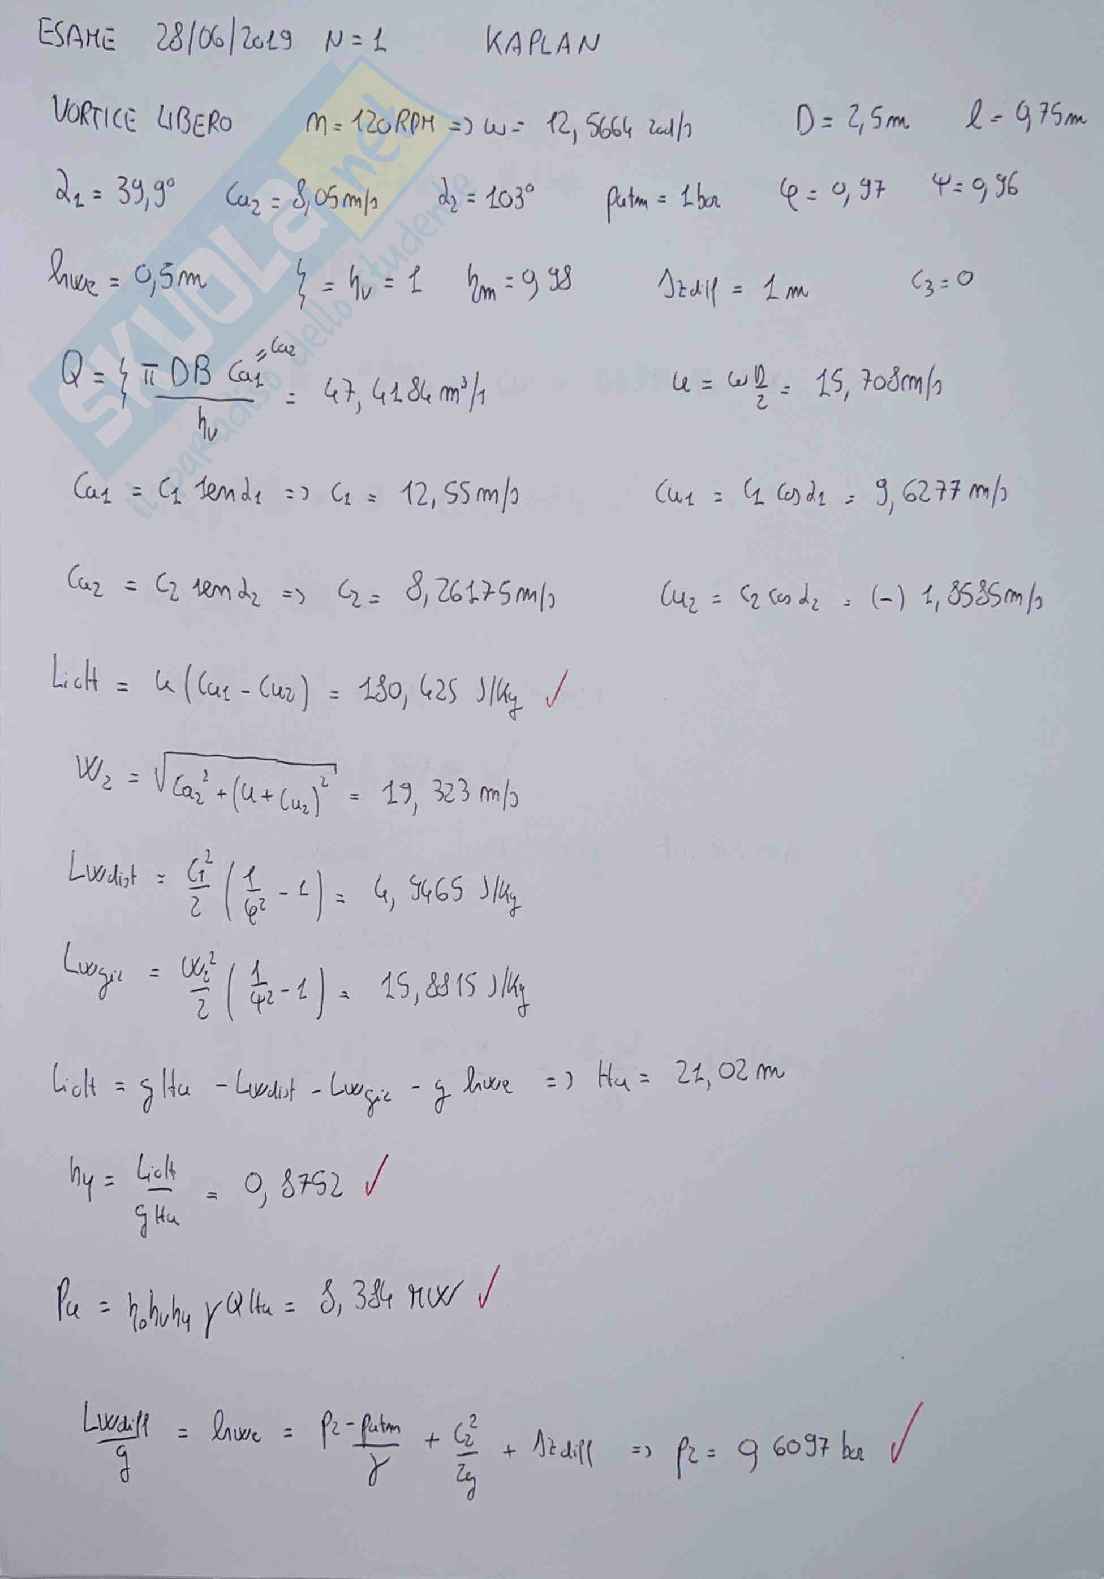 ESAME 28/06/2019 N=1 KAPLAN
VORTICE LIBERO n = 120 RPM => ω = 12,5664 rad/s D = 2,5m l = 0,75m
α1 = 39,9° Ca2 = 8,05 m/s α2 = 103° patm = 1 bar φ = 0,97 ψ = 0,96
hwe = 0,5 m ξ = ηv = 1 ηm = 0,98 Δzdiff = 1 m C3 = 0
Q = ξ π D B Ca1 = Ca2 / ηv = 47,4184 m³/s u = ω D/2 = 15,708 m/s
Ca1 = C1 senα1 => C1 = 12,55 m/s Cu1 = C1 cosα1 = 9,6277 m/s
Ca2 = C2 senα2 => C2 = 8,26175 m/s Cu2 = C2 cosα2 = (-) 1,8585 m/s
Lid = u (Cu1 - Cu2) = 180,425 J/Kg ✓
W2 = √(Ca2² + (u + Cu2)²) = 19,323 m/s
Lwdist = C1²/2 (1/φ² - 1) = 4,9465 J/Kg
Lwgir = W2²/2 (1/ψ² - 1) = 15,8815 J/Kg
Lid = gHu - Lwdist - Lwgir - g hwe => Hu = 21,02 m
ηy = Lid / gHu = 0,8752 ✓
Pu = ηo ηv ηy γ Q Hu = 8,384 MW ✓
Lwdiff / g = hwe = p2 - patm / γ + C2² / 2g + Δzdiff => p2 = 0,6097 bar ✓
SKUOLA.net
il paradiso dello studente